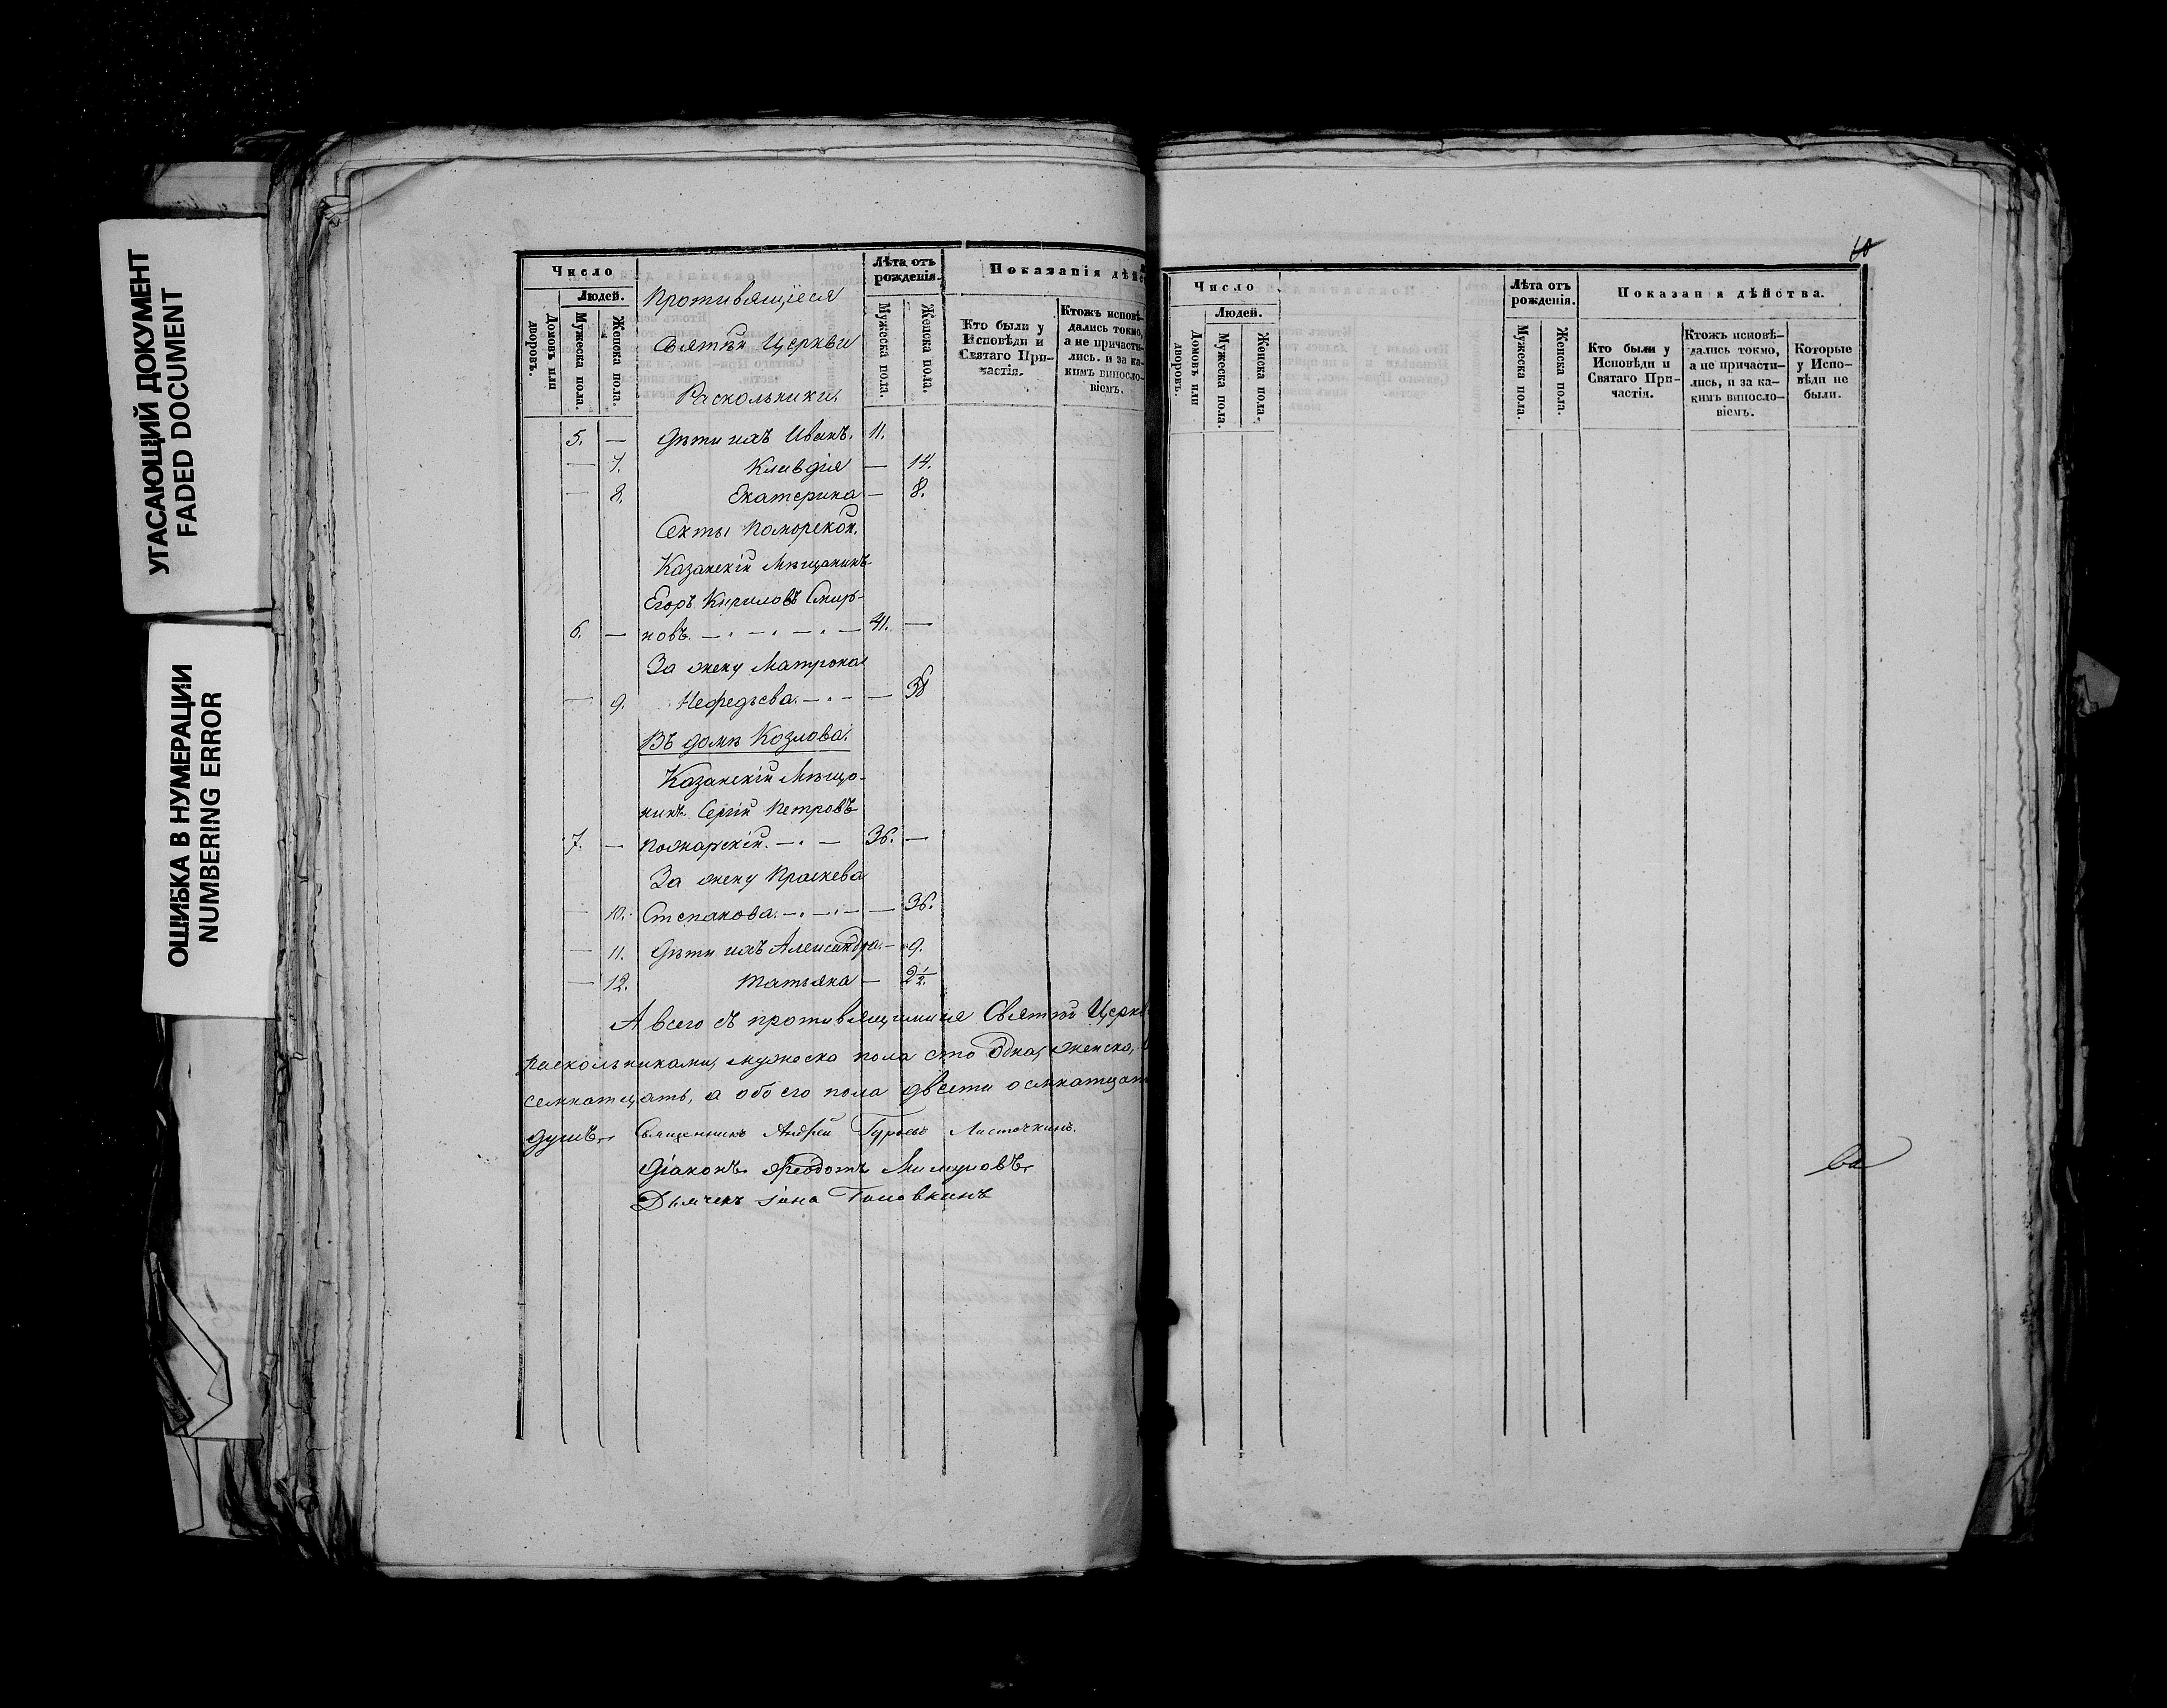 УГАСАЮЩИЙ ДОКУМЕНТ
FADED DOCUMENT
ОШИБКА В НУМЕРАЦИИ
NUMBERING ERROR
Число
Людей.
Домовъ или дворовъ.
Мужеска пола.
Женска пола.
Противящіеся
Святѣй Церкви
Раскольники.
Лѣта отъ рожденія.
Мужеска пола.
Женска пола.
Показанія дѣйс
Кто были у Исповѣди и Святаго При-частія.
Ктожъ исповѣ-дались токмо, а не причасти-лись. и за ка-кимъ виносло-віемъ.
5. — Дѣти ихъ Иванъ. 11.
— 7. Клавдія — 14.
— 8. Екатерина — 8.
Секты Поморской.
Казанскій Мѣщанинъ
Егоръ Кириловъ Смир-
6. — новъ. — 41. —
За жену Матрона
— 9. Нефедьева. — — 38
Въ домѣ Козлова.
Казанскій Мѣща-
нинъ Сергій Петровъ
7. — Пожарскій. — 36. —
За жену Праскева
— 10. Степанова. — — 36.
— 11. Дѣти ихъ Александра. — 9.
— 12. Татьяна — 2½.
А всего съ противящимися Святой Церкв
Раскольниками, мужеска пола сто одна, женска,
семнатцать, а обоего пола двести осмнатцат
душъ. Священникъ Андрей Гурьевъ Листочкинъ.
Діаконъ Феодотъ Милуновъ.
Дьячекъ Іона Головкинъ
60
Число
Людей.
Домовъ или дворовъ.
Мужеска пола.
Женска пола.
Лѣта отъ рожденія.
Мужеска пола.
Женска пола.
Показан я дѣйства.
Кто были у Исповѣди и Святаго При-частія.
Ктожъ исповѣ-дались токмо, а не причасти-лись, и за ка-кимъ винословіемъ.
Которые у Испо-вѣди не были.